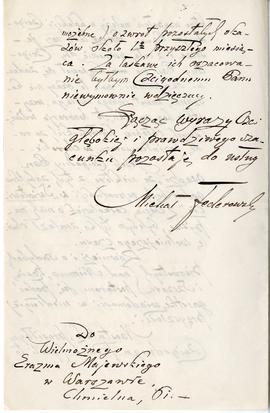 możeme, o zwrot pozostałych oka-
zów około 1go przyszłego miesią-
ca. Za łaskawe ich oszacowa-
nie byłbym Czcigodnemu Panu
niewymownie wdzięczny.
Łącząc wyrazy Czci
głębokiej i prawdziwego sza-
cunku pozostaję do usług
Michał Federowski
Do
Wielmożnego
Erazma Majewskiego
w Warszawie.
Chmielna, 61.—